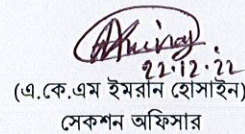 22.12.22
(এ.কে.এম ইমরান হোসাইন)
সেকশন অফিসার